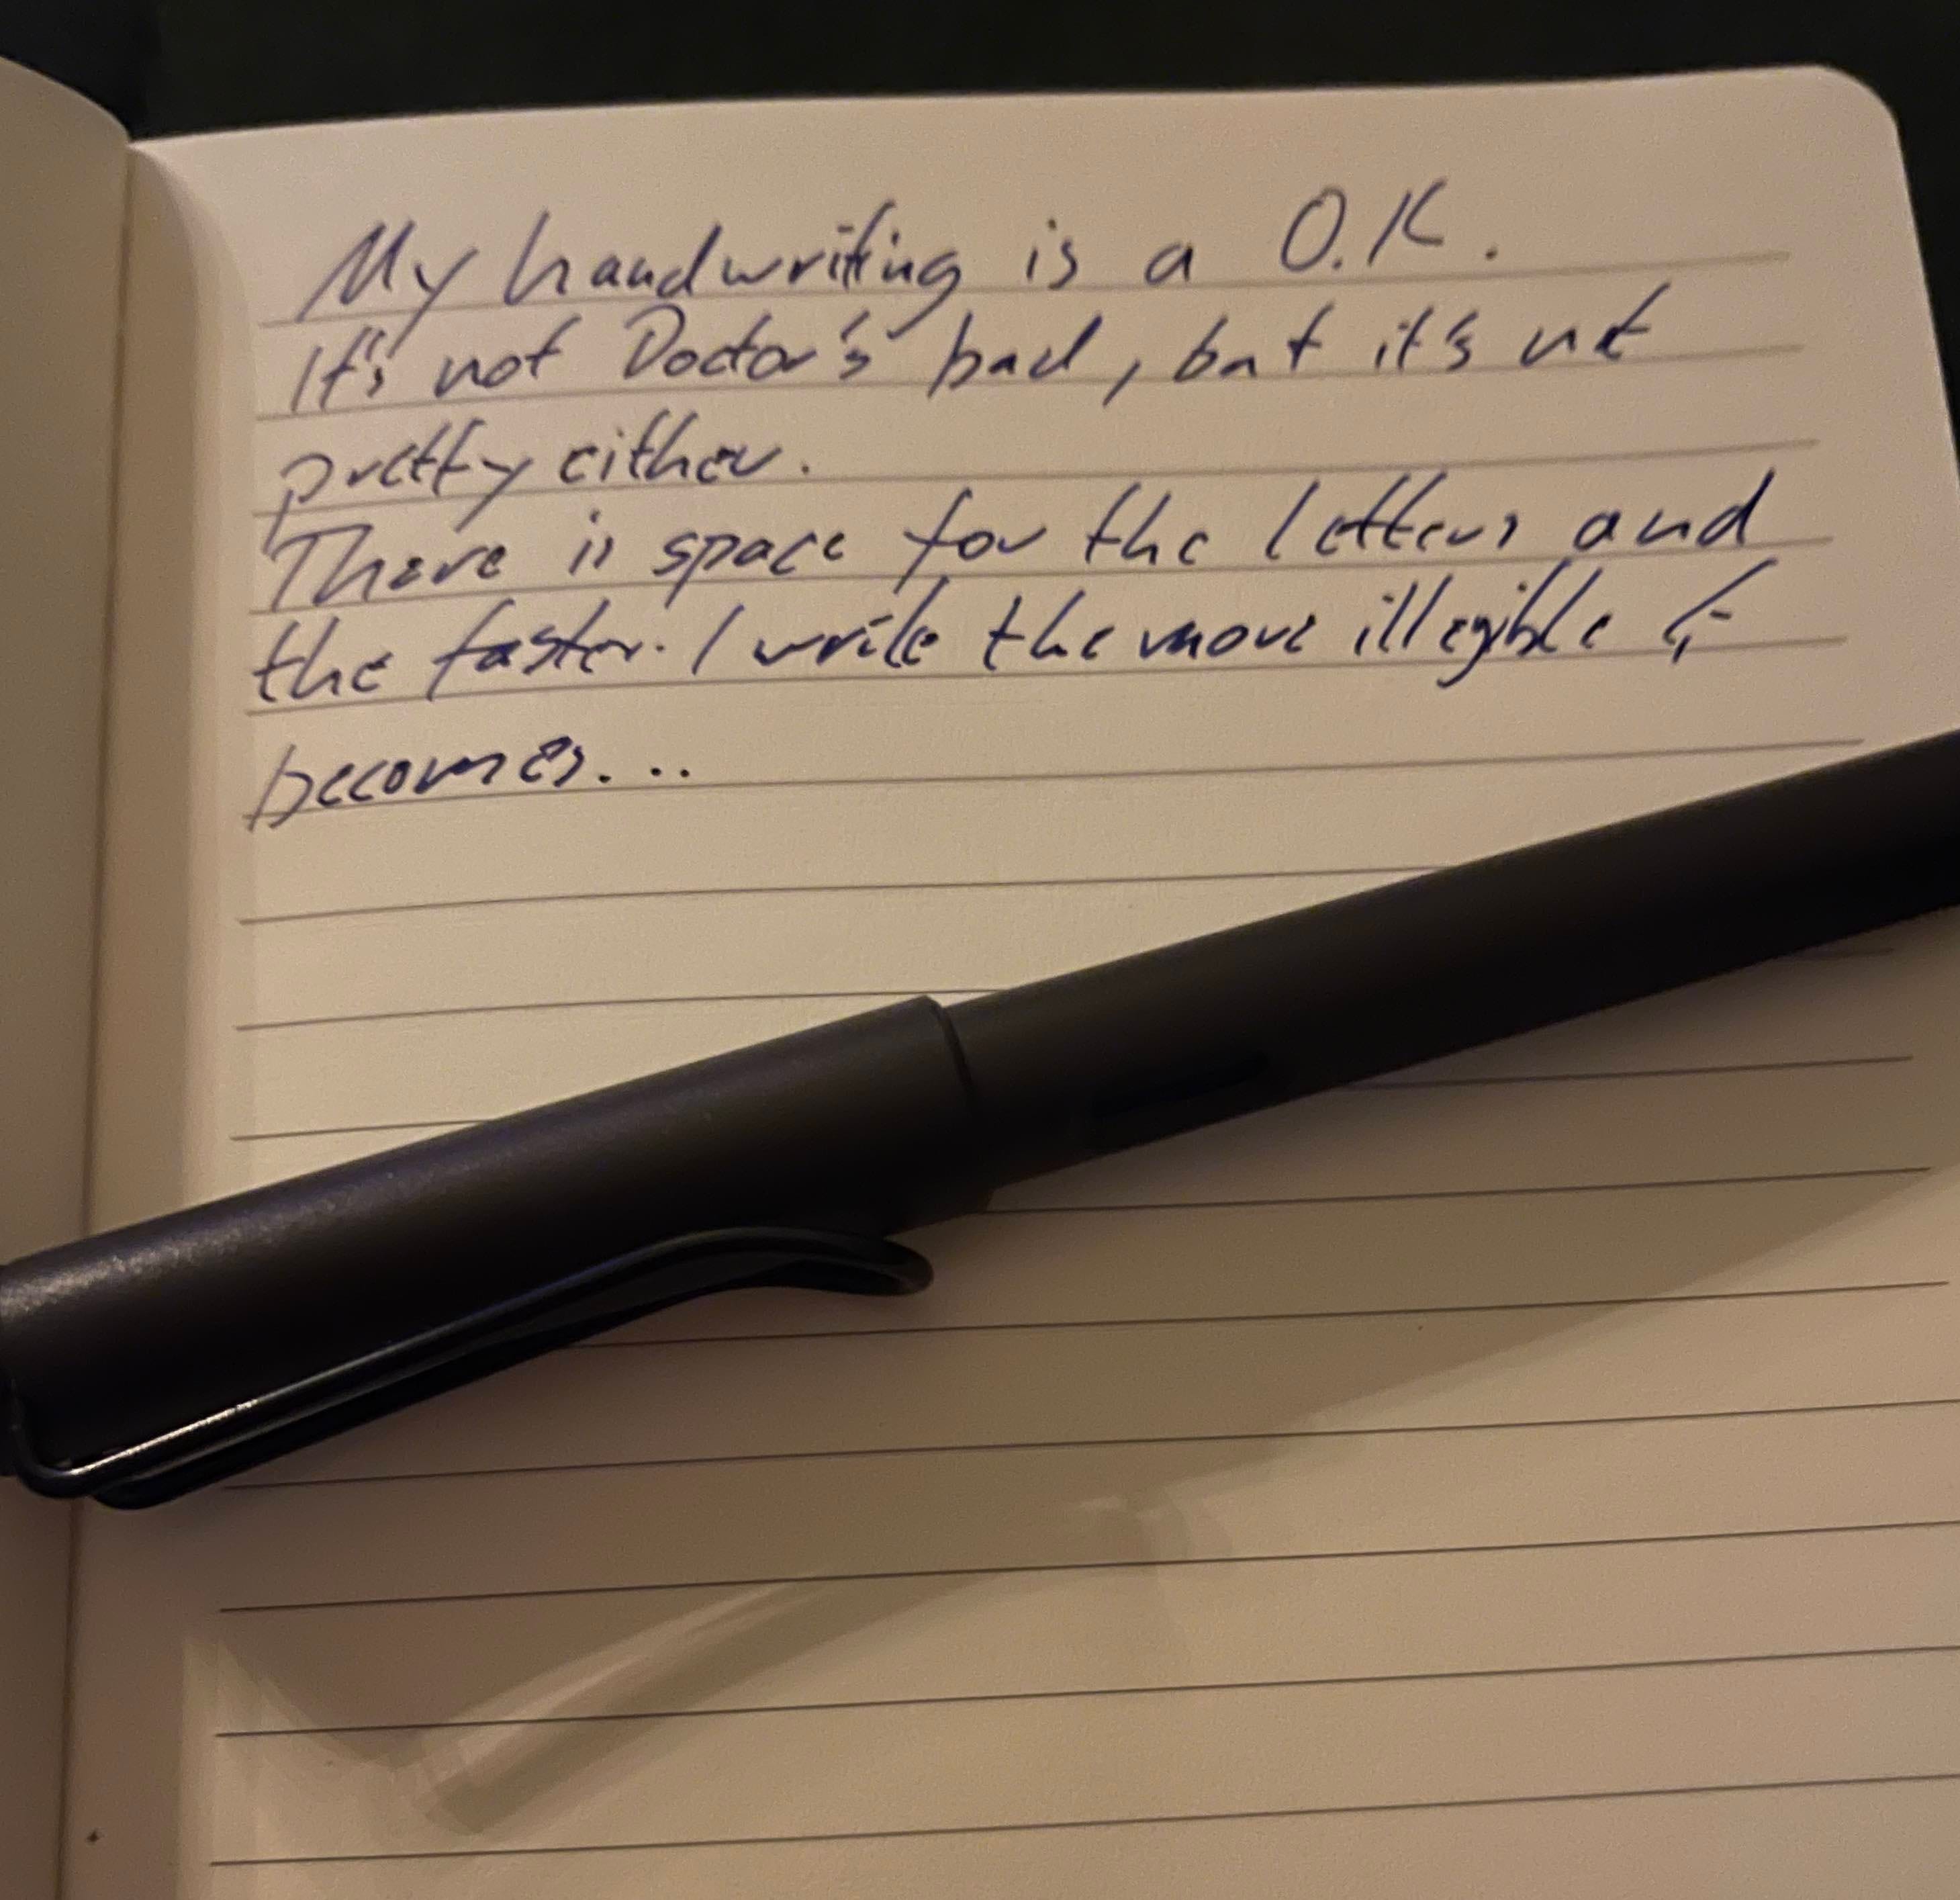 My handwriting is a O.K.
It's not Doctor's bad, but it's not
pretty either.
There is space for the letters and
the faster. I write the more illegible it
becomes...